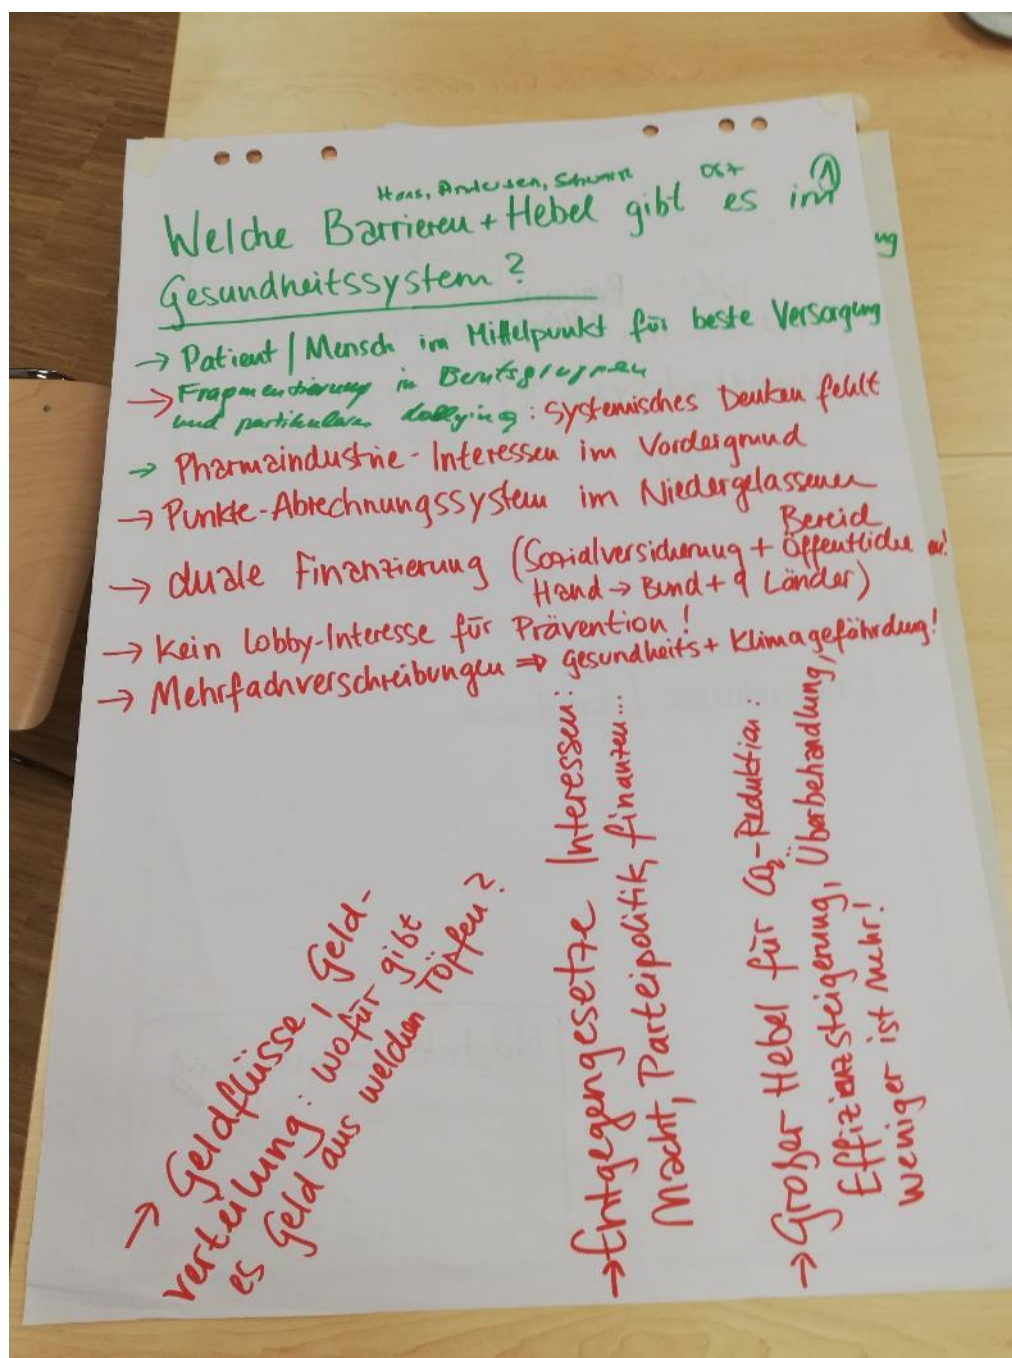 Welche Barrieren + Hebel gibt es im ①
Gesundheitssystem?
→ Patient / Mensch im Mittelpunkt für beste Versorgung
→ Fragmentierung in Berufsgruppen
und partikulares Lobbying: systemisches Denken fehlt
→ Pharmaindustrie-Interessen im Vordergrund
→ Punkte-Abrechnungssystem im Niedergelassenen
Bereich
→ duale Finanzierung (Sozialversicherung + Öffentliche
Hand → Bund + 9 Länder)
→ Kein Lobby-Interesse für Prävention!
→ Mehrfachverschreibungen ⇒ gesundheits + Klimagefährdung!
→ Geldflüsse, Geld-
verteilung: wofür gibt
es Geld aus welchen Töpfen?
→ Entgegengesetzte Interessen:
Macht, Parteipolitik, finanzen...
→ Großer Hebel für CO₂-Reduktion:
Effizienzsteigerung, Überbehandlung,
weniger ist mehr!
ng